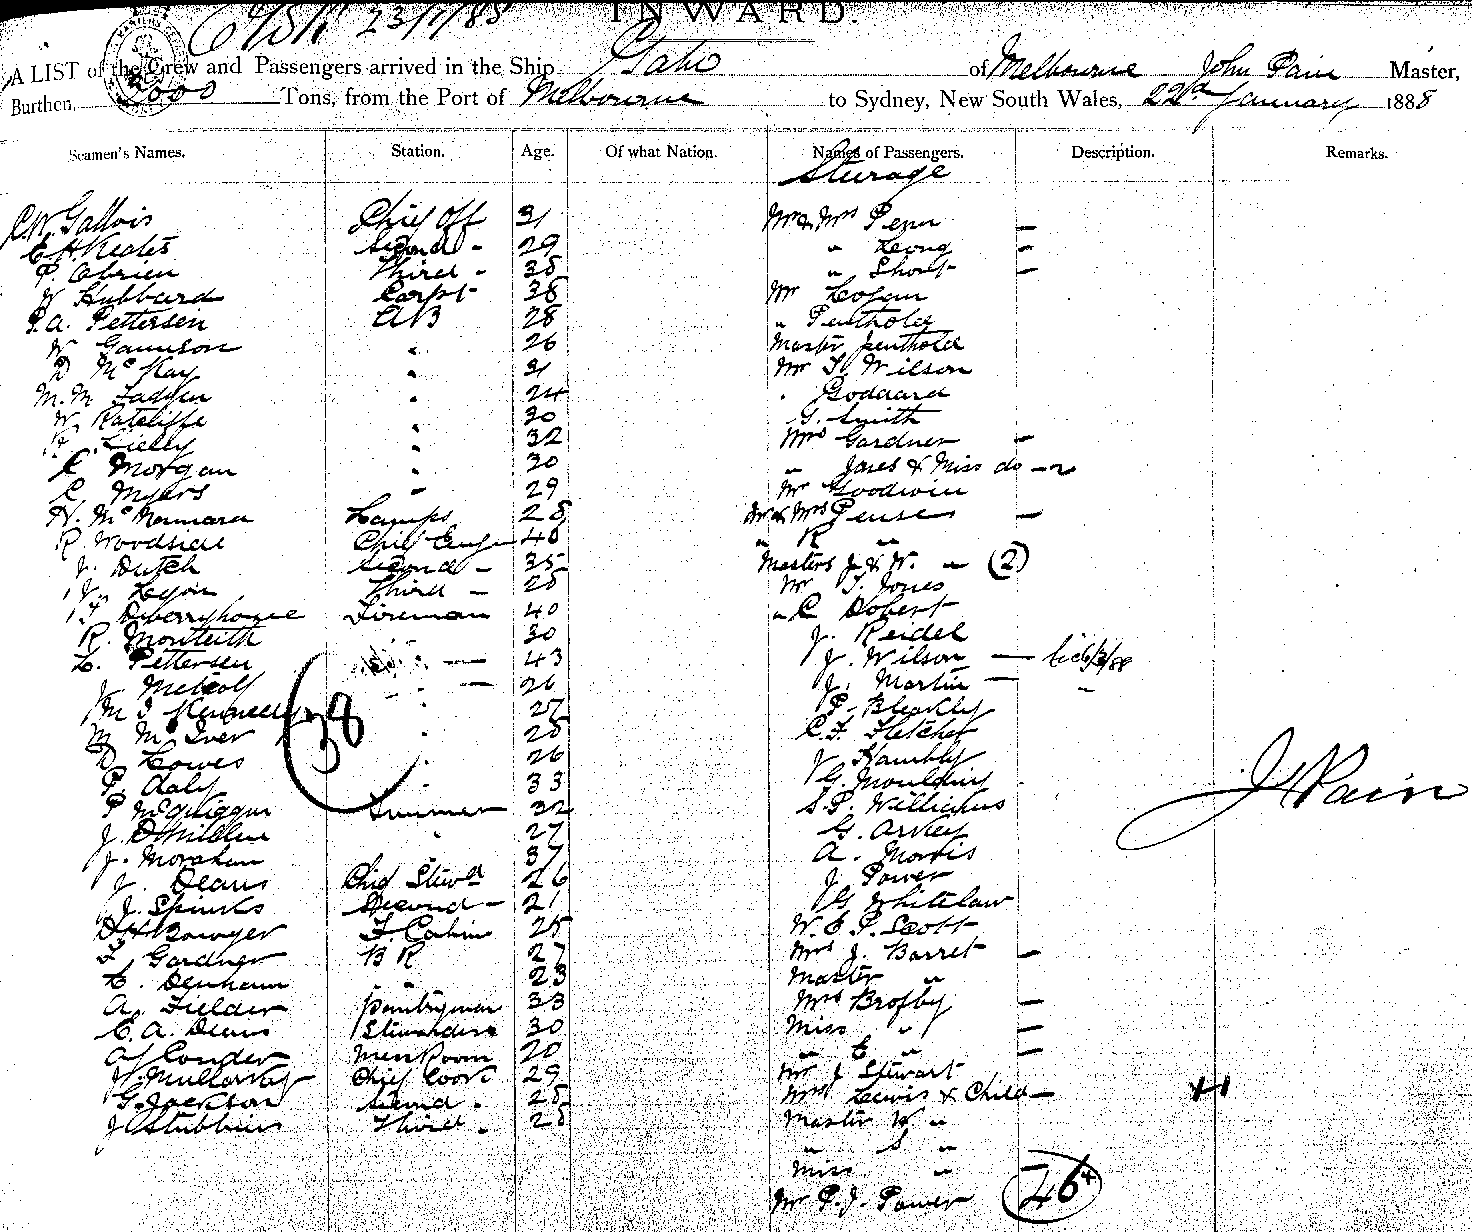 INWARD.
23/1/88
A LIST of the Crew and Passengers arrived in the Ship of Melbourne John Pain Master,
Burthen, 2000 Tons, from the Port of Melbourne to Sydney, New South Wales, 22nd January 1888
Seamen's Names. Station. Age. Of what Nation. Names of Passengers. Description. Remarks.
Sturage
C.W. Gallois Chief Off 31 Mr & Mrs Penn —
E H Keates Second - 29 " Leong —
P. Obrien Third - 38 " Short —
W Hubbard Carpt 38 Mr Logan
P.A. Pettersen AB 28 " Penthold
W Gannson " 26 Master penthold
D McKay " 31 Mr T. Wilson
M.M Fadden " 24 " Goddard
W. Ratcliffe " 30 G. Smith
" 32 Mrs Gardner —
C Morgan " 30 " Jares & Miss do — 2
C Myers " 29 Mr Goodwin
H. McNamara Lamps 28 Mr & Mrs Pense —
R Woodside Chief Engr 40 " R "
J. Dutch Second - 35 Masters J & W. " (2)
J. Lyon Third - 28 Mr T. Jones
Fireman 40 " C Dobert
R. Monteith 30 J. Reidel
L. Pettersen " — 43 J. Wilson —
J Metcalf " — 26 J. Martin —
38
M J Kennelly " 27 P. Bleakley
M McIver " 28 C.F. Fletcher
D. Lowes " 26 J Hambly
P. Daly " 33 G. Moulding
J Pain
P McGuiggan Trimmer 32 S.P. Williams
J. " 27 G. Arkey
J. Morahan 37 A. Morris
J. Deans Chief Stewd 26 J Power
J. Spinks Second - 21 G Whitelaw
D H Bowyer F. Cabin 25 W. E. P. Scott
F. Gardner B R 27 Mrs J. Barret —
C. Denham " " 23 Master "
A. Fielder Pantryman 33 Mrs Brofby —
E. A. Deans Stewardess 30 Miss " —
A J Conder Mess Room 20 " E " —
Chief Cook 29 Mr J Stewart
G. Jackson Second. 28 Mrs Lewis & Child —
J Stubbins Third. 28 Master W. "
" S "
Miss "
Mr P. J. Power 46